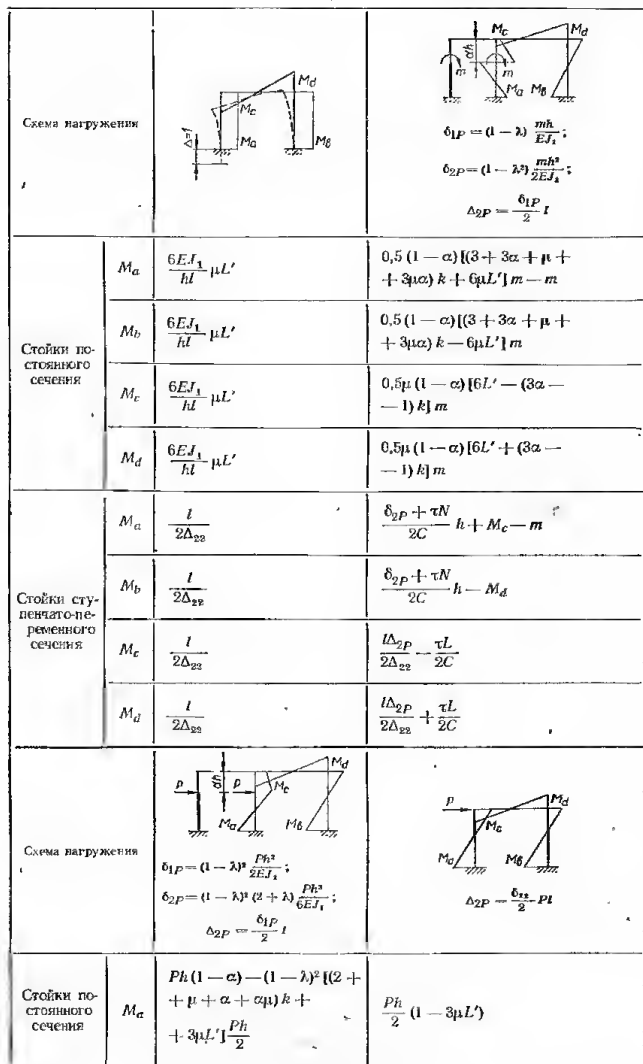 Схема нагружения
Δ=1
M_c
M_d
M_a
M_в
M_c
M_d
αh
m
m
M_a
M_в
δ_{1P} = (1 − λ) \frac{mh}{EJ_1};
δ_{2P} = (1 − λ²) \frac{mh²}{2EJ_1};
Δ_{2P} = \frac{δ_{1P}}{2} l
Стойки по-
стоянного
сечения
M_a
\frac{6EJ_1}{hl} μL′
0,5 (1 − α) [(3 + 3α + μ +
+ 3μα) k + 6μL′] m − m
M_b
\frac{6EJ_1}{hl} μL′
0,5 (1 − α) [(3 + 3α + μ +
+ 3μα) k − 6μL′] m
M_c
\frac{6EJ_1}{hl} μL′
0,5μ (1 − α) [6L′ − (3α −
− 1) k] m
M_d
\frac{6EJ_1}{hl} μL′
0,5μ (1 − α) [6L′ + (3α −
− 1) k] m
Стойки сту-
пенчато-пе-
ременного
сечения
M_a
\frac{l}{2Δ_{22}}
\frac{δ_{2P} + τN}{2C} h + M_c − m
M_b
\frac{l}{2Δ_{22}}
\frac{δ_{2P} + τN}{2C} h − M_d
M_c
\frac{l}{2Δ_{22}}
\frac{lΔ_{2P}}{2Δ_{22}} − \frac{τL}{2C}
M_d
\frac{l}{2Δ_{22}}
\frac{lΔ_{2P}}{2Δ_{22}} + \frac{τL}{2C}
Схема нагружения
P
αh
P
M_c
M_d
M_a
M_в
δ_{1P} = (1 − λ)² \frac{Ph²}{2EJ_1};
δ_{2P} = (1 − λ)² (2 + λ) \frac{Ph³}{6EJ_1};
Δ_{2P} = \frac{δ_{1P}}{2} l
P
M_c
M_d
M_a
M_в
Δ_{2P} = \frac{δ_{12}}{2} Pl
Стойки по-
стоянного
сечения
M_a
Ph (1 − α) − (1 − λ)² [(2 +
+ μ + α + αμ) k +
+ 3μL′] \frac{Ph}{2}
\frac{Ph}{2} (1 − 3μL′)